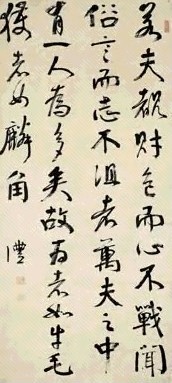 若夫覩財色而心不戰聞
俗言而志不沮者萬夫之中
有一人為多矣故為者如牛毛
獲者如麟角
澧